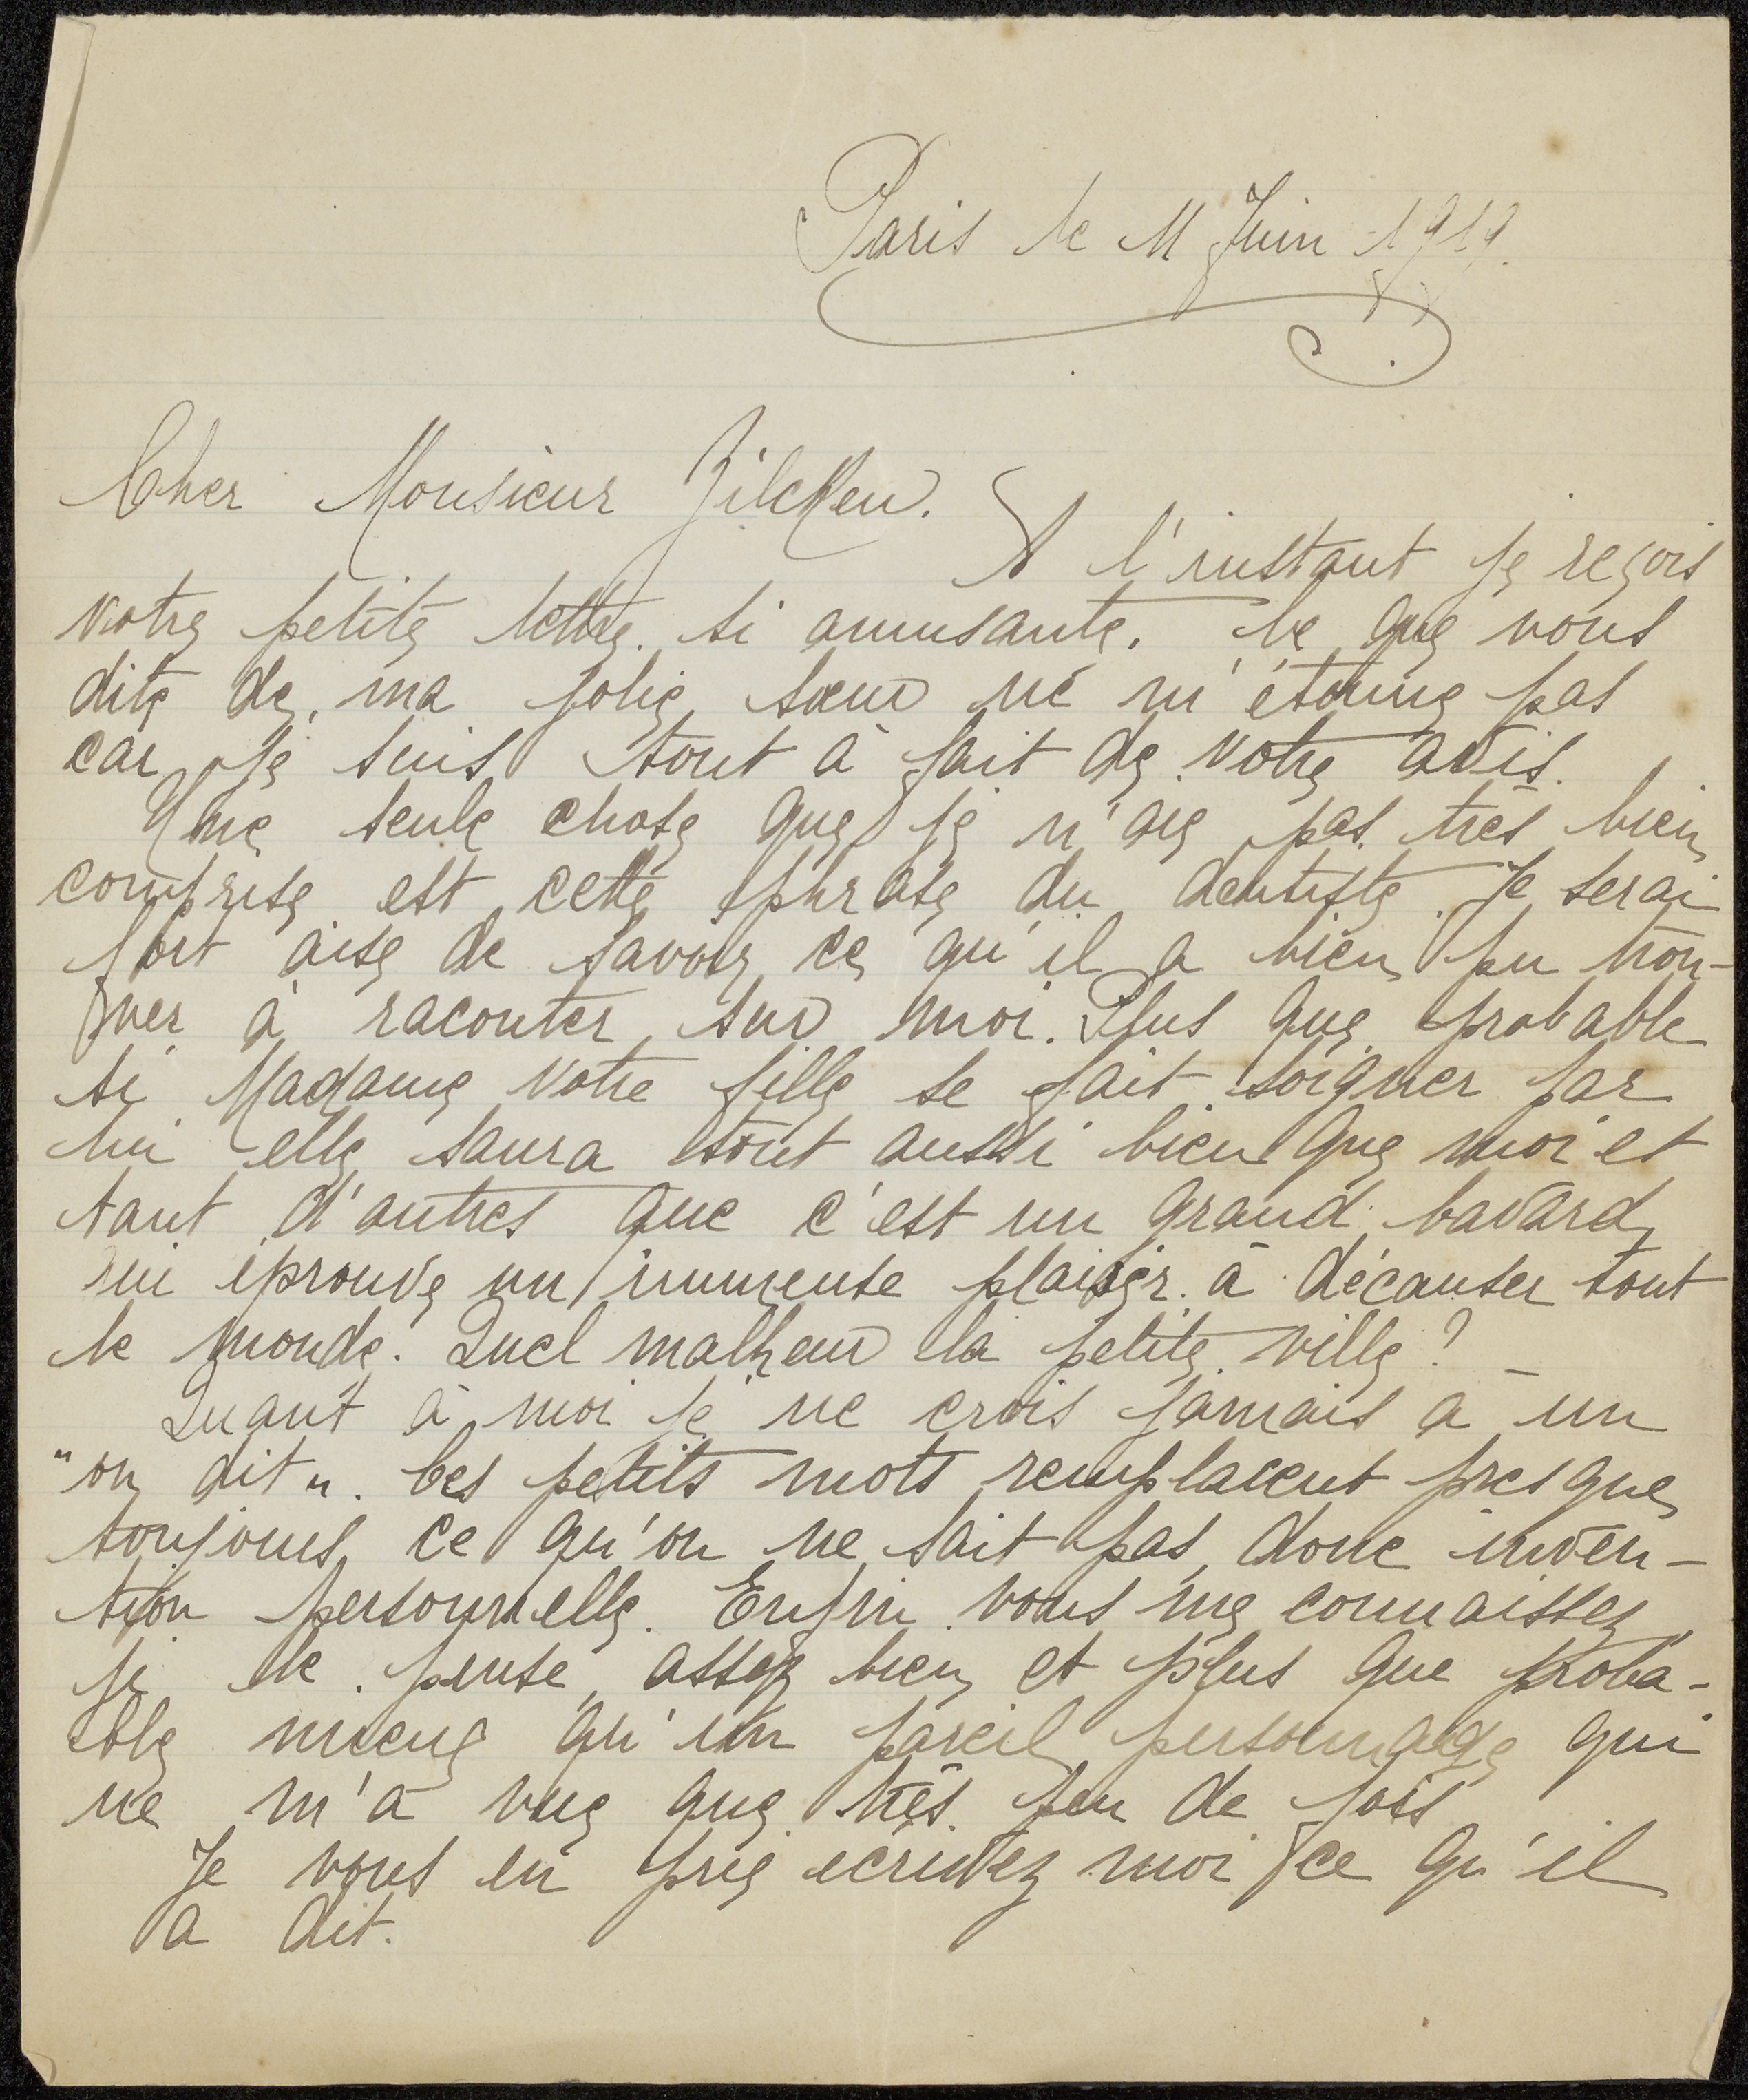 Paris le 11 Juin 1919.
Cher Monsieur Zilcken.
A l'instant je reçois
votre petite lettre si amusante. Ce que vous
dite de ma jolie sœur ne m'étonne pas
car je suis tout à fait de votre avis.
Une seule chose que je n'aie pas très bien
comprise est cette phrase du dentiste. Je serai
fort aise de savoir ce qu'il a bien pu trou-
ver à raconter sur moi. Plus que probable
si Madame votre fille se fait soigner par
lui elle saura tout aussi bien que moi et
tant d'autres que c'est un grand bavard
qui éprouve un immense plaisir à décauser tout
le monde. Quel malheur la petite ville ? _
Quant à moi je ne crois jamais à un
"on dit". Ces petits mots remplacent presque
toujours ce qu'on ne sait pas, donc inven-
tion personnelle. Enfin vous me connaissez
je le pense, assez bien et plus que proba-
ble mieux qu'un pareil personnage qui
ne m'a vue que très peu de fois
Je vous en prie écrivez moi ce qu'il
a dit.